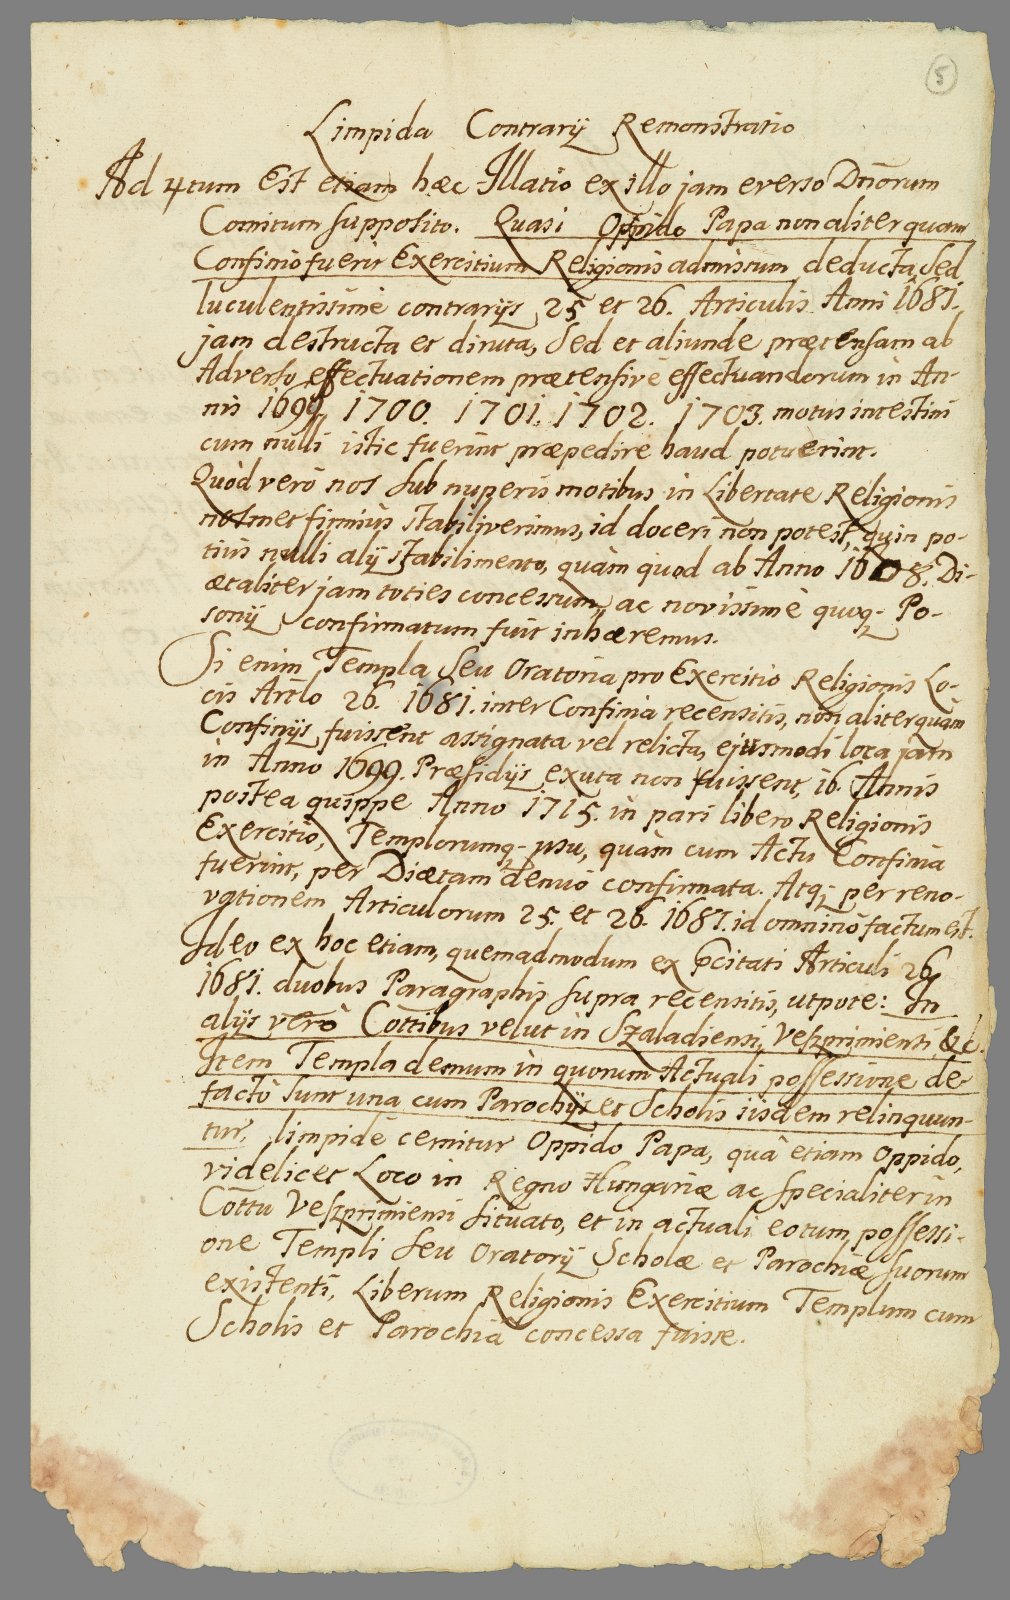 5
Limpida Contrarij Remonstratio
Ad 4tum Est etiam hæc Illatio ex illo jam everso Dnõrum
Comitum supposito. Quasi Oppido Papa non aliter quam
Confinio fuerit Exercitium Religionis admissum deducta, Sed
luculentissimè contrarijs 25 et 26. Articulis Anni 1681.
jam destructa et diruta, Sed et aliunde prætensam ab
Adverso effectuationem prætensivè effectuandorum in An-
nis 1699. 1700. 1701. 1702. 1703. motus intestini
cum nulli istic fuerint præpedire haud potuerint.
Quòd verò nos sub nuperis motibus in Libertate Religionis
nosmet firmius stabiliverimus, id doceri non potest, quin po-
tius nulli alij stabilimento, quàm quod ab Anno 1608. Di-
ætaliter jam toties concessum, ac novissimè quoq. Po-
sonij confirmatum fuit inhæremus.
Si enim Templa seu Oratoria pro Exercitio Religionis Lo-
cis Artlo 26. 1681. inter Confinia recensitis, non aliter quàm
Confinijs fuissent assignata vel relicta, ejusmodi loca jam
in Anno 1699. Præsidijs exuta non fuissent, 16. Annis
postea quippe Anno 1715. in pari libero Religionis
Exercitio, Templorumq. usu, quàm cum Actu Confinia
fuerint, per Diætam denuò confirmata. Atq. per reno-
vationem Articulorum 25. et 26. 1687. id omninò factum est.
Ideo ex hoc etiam, quemadmodum ex pcitati Articuli 26
1681. duobus Paragraphis supra recensitis, utpote: In
alijs verò Cottibus velut in Szaladiensi, Veszprimienti &c.
Item Templa demum in quorum Actuali possessione de-
factò sunt una cum Parochijs et Scholis iisdem relinquun-
tur, limpidè cernitur Oppido Papa, quâ etiam Oppido,
videlicet Loco in Regno Hungariæ ac specialiter in
Cottu Veszprimiensi situato, et in actuali eotum possessi-
one Templi seu Oratorij Scholæ et Parochiæ suorum
existenti, Liberum Religionis Exercitium Templum cum
Scholis et Parochiâ concessa fuisse.